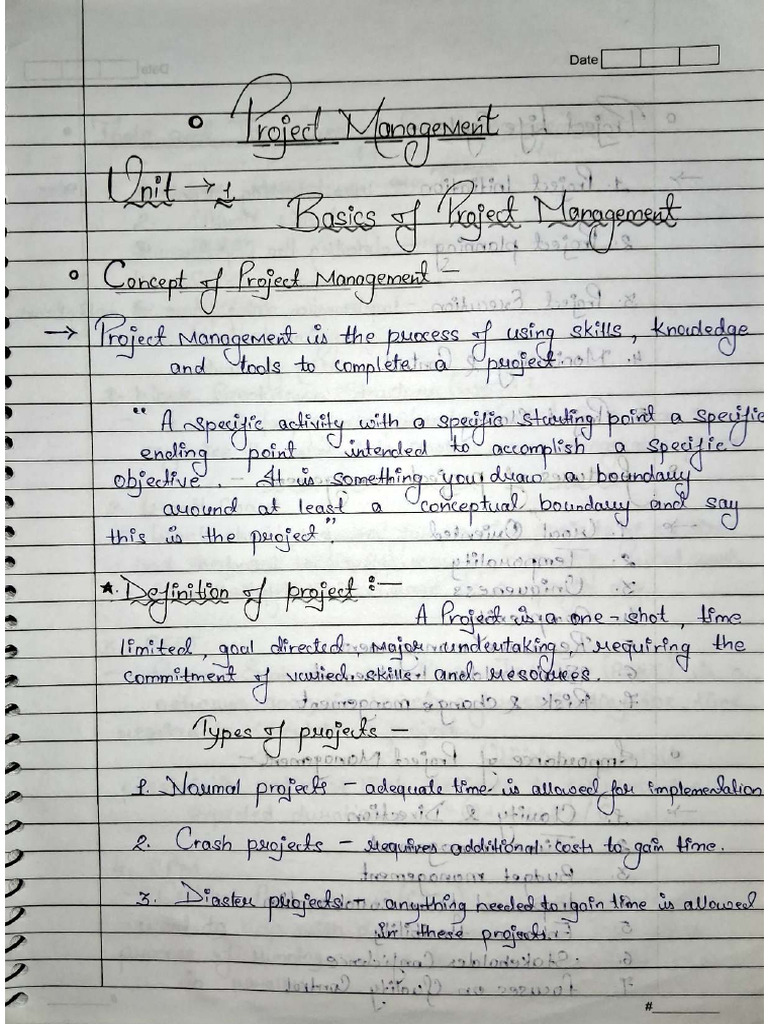 Date
Project Management
Unit → 1
Basics of Project Management
Concept of Project Management -
→ Project Management is the process of using skills, knowledge
and tools to complete a project.
" A specific activity with a specific starting point a specific
ending point intended to accomplish a specific
objective. - It is something you draw a boundary
around at least a conceptual boundary and say
this is the project"
* Definition of project :-
A Project is a one-shot, time
limited, goal directed, major undertaking, requiring the
commitment of varied skills and resources.
Types of projects -
1. Normal projects - adequate time is allowed for implementation
2. Crash projects - requires additional costs to gain time.
3. Diaster projects - anything needed to gain time is allowed
in these projects.
#